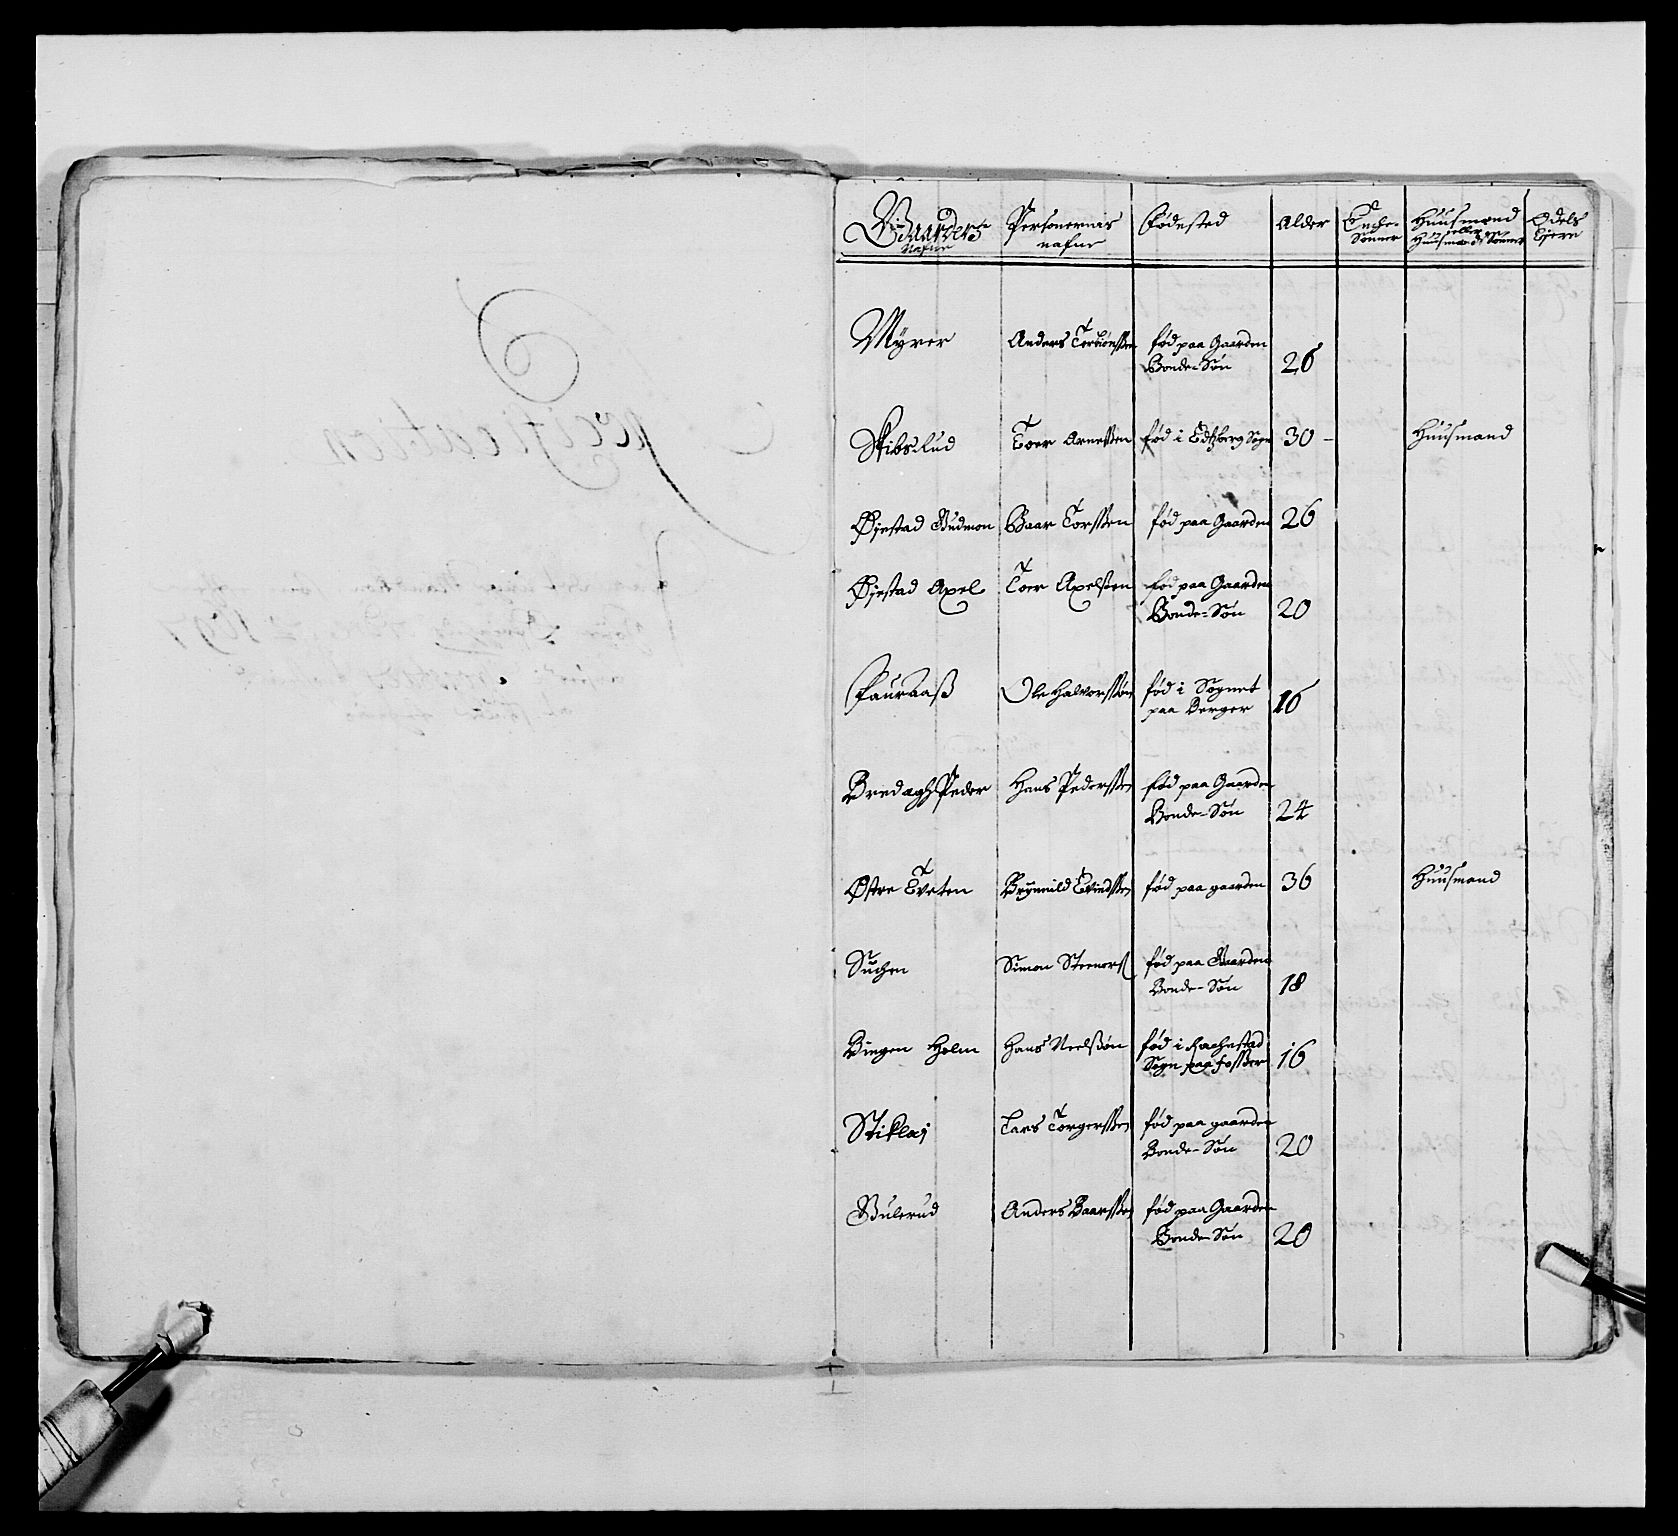 Gaardens Nafne | Personernes nafne | Fødested | Alder | Enche-Sønner | Huusmænd eller Huusmænds Sønner | Odels Ejere
Myrer | Anders Torbiønssen | fød paa Gaarden
Bonde-Søn | 26
Skibsrud | Toer Arnessen | fød i Sogn | 30 – | Huusmand
Øjestad Gudmon | Baar Torssen | fød paa Gaarden | 26
Øjestad Axel | Toer Axelsen | fød paa Gaarden
Bonde-Søn | 20
Fauraas | Ole Halvorssøn | fød i Sognet
paa Berger | 16
Bredagh Peder | Hans Pederssen | fød paa Gaarden
Bonde-Søn | 24
Østre Tveten | Brynnild Evindssen | fød paa gaarden | 36 | Huusmand
Suchen | Simon Steenerss | fød paa Gaarden
Bonde-Søn | 18
Bingen Holm | Hans Neelssøn | fød i Rachestad
Sogn paa Fosser | 16
Stiklaj | Lars Torgerssen | fød paa gaarden
Bonde-Søn | 20
Bulerud | Anders Baarssen | fød paa Gaarden
Bonde-Søn | 20